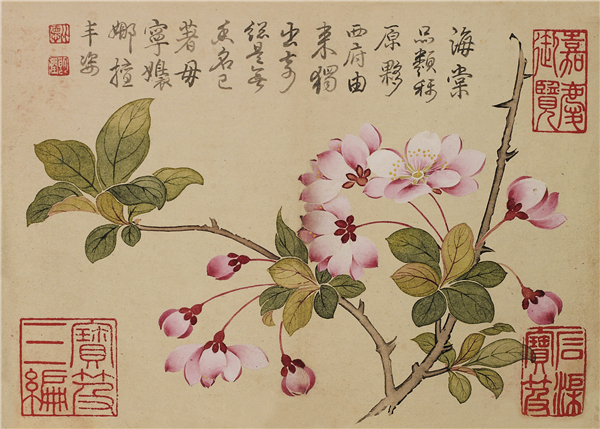 海棠
品類稱
原夥
西府由
來獨
出奇
總是無
香名已
著毋
寧嬝
娜擅
丰姿
嘉慶
御覽
石渠
寶笈
寶笈
三編